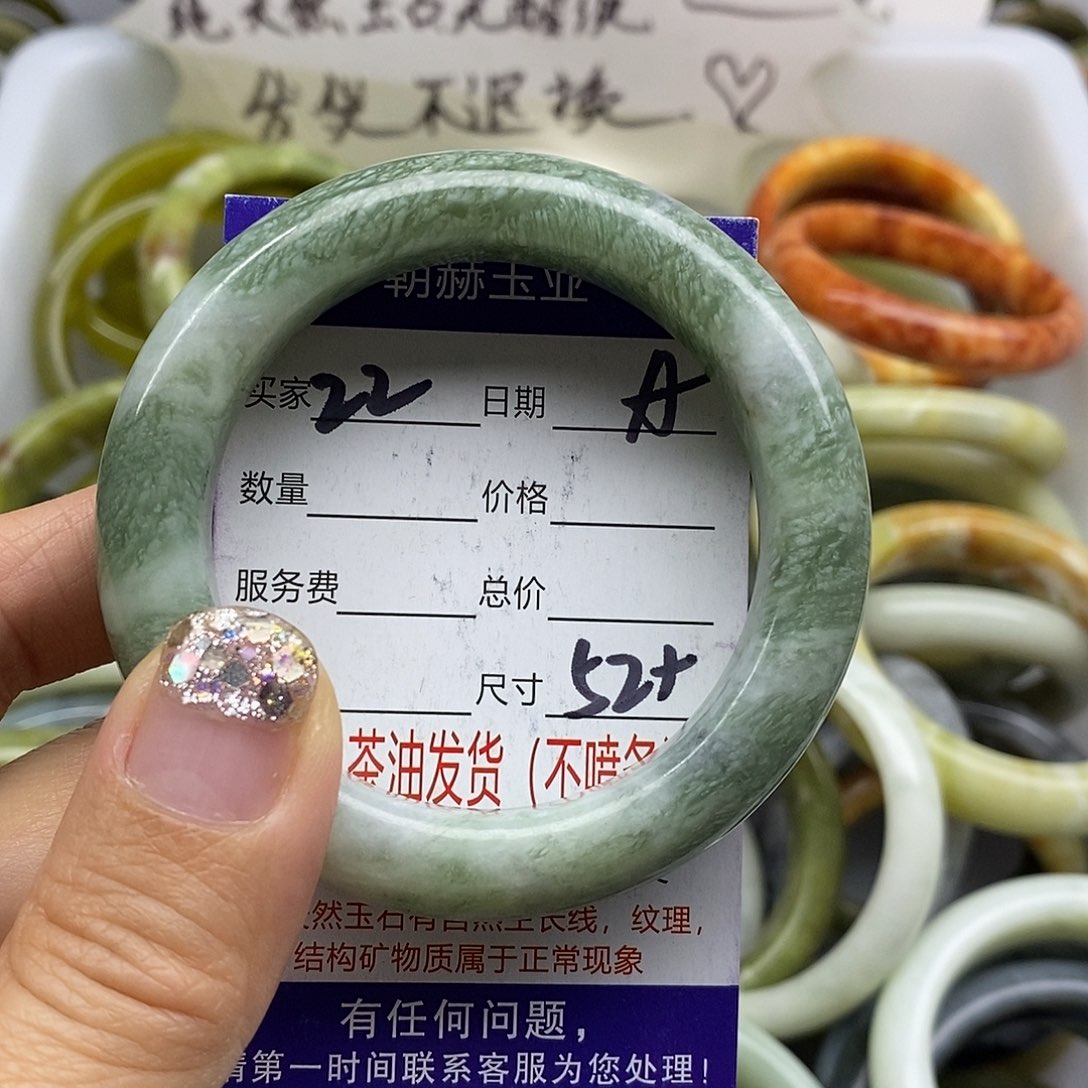 纯天然玉石无
售货不退换
朝赫玉业
买家 22 日期 A
数量 价格
服务费 总价
尺寸 52+
茶油发货（不喷
然玉石有自然生长线，纹理，
结构矿物质属于正常现象
有任何问题，
请第一时间联系客服为您处理！